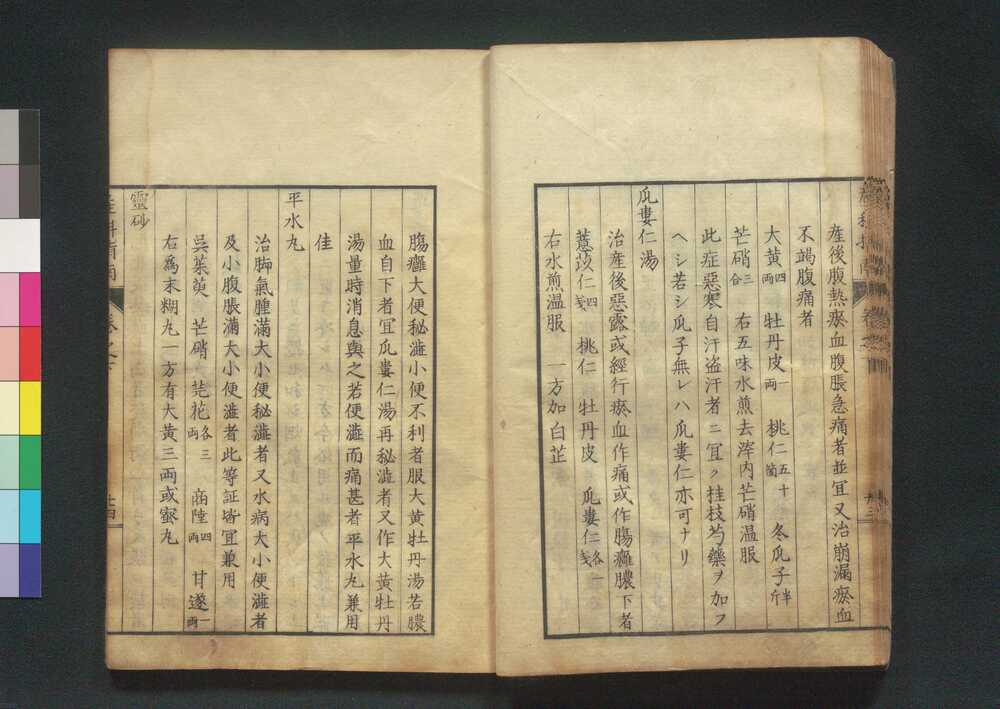 産後腹熱瘀血腹脹急痛者並宜又治崩漏瘀血
不竭腹痛者
大黄四両 牡丹皮一両 桃仁五十箇 冬瓜子半斤
芒硝三合 右五味水煎去滓内芒硝温服
此症惡寒自汗盗汗者ニ宜ク桂枝芍藥ヲ加フ
ヘシ若シ瓜子無レハ瓜蔞仁亦可ナリ
瓜蔞仁湯
治産後惡露或經行瘀血作痛或作腸癰膿下者
薏苡仁四戔 桃仁 牡丹皮 瓜蔞仁各一戔
右水煎温服 一方加白芷
腸癰大便秘澁小便不利者服大黄牡丹湯若膿
血自下者宜瓜蔞仁湯再秘澁者又作大黄牡丹
湯量時消息與之若便澁而痛甚者平水丸兼用
佳
平水丸
治脚氣腫滿大小便秘澁者又水病大小便澁者
及小腹脹滿大小便澁者此等証皆宜兼用
呉茱萸 芒硝 芫花各三両 商陸四両 甘遂一両
右為末糊丸一方有大黄三両或蜜丸
靈砂
産科指南 巻之下 廿四